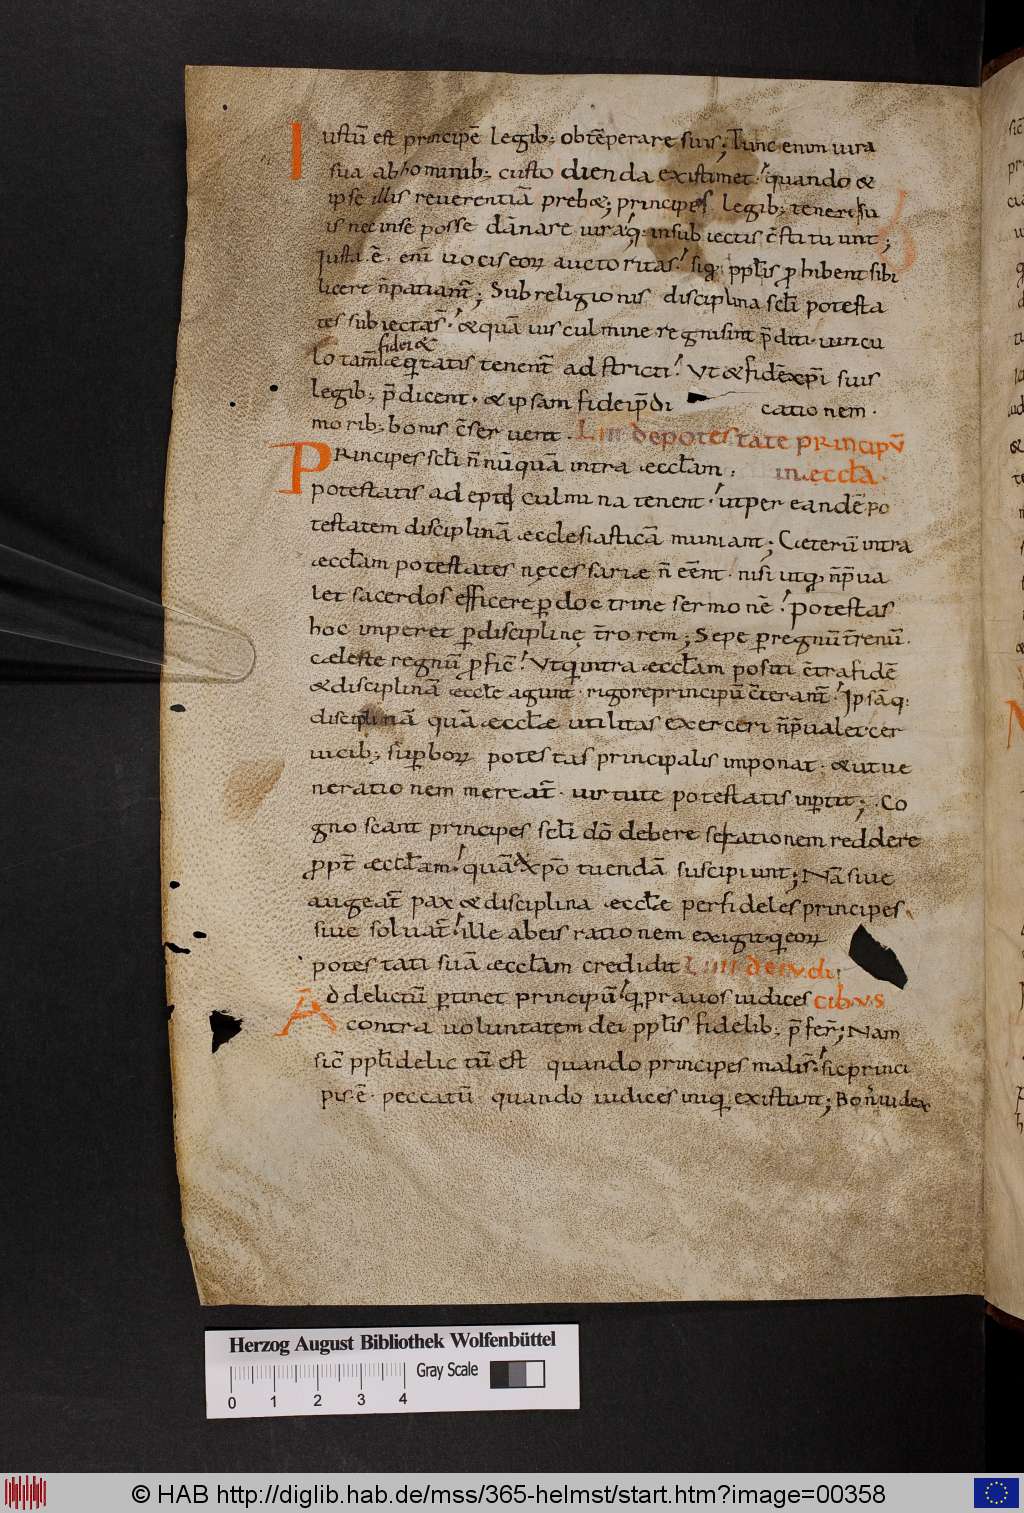 Iustū est principē legib; obtēperare suis; Tunc enim iura
sua ab hominib; custodienda existimet· quando &
ipse illis reuerentiā preb&; principes legib; teneri su
is nec in se posse dānare iura q; in subiectis c̄stituunt;
Iusta ·ē· eni uocis eorū auctoritas· si q̄ pplis p̱hibent sibi
licere n̄ patiant̄; Sub religionis disciplina scłi potesta
tes subiectas̄· & quāuis culmine regni sint p̄diti· uincu
lo tam̄ fidei & eq̄tatis tenent̄ ad stricti· Vt & fidē xp̄i suis
legib; p̄dicent· & ipsam fidei p̄di cationem·
morib; bonis c̄seruent· LIII de potestate principū
Principes scłi n̄ nūquā intra æccłam in æccła·
potestatis adepte culmina tenent· ut per eandē po
testatem disciplinā æcclesiasticā muniant; Cæterū intra
æccłam potestates necessariæ n̄ eēnt· nisi ut q̄ n̄ p̄ua
let sacerdos efficere p̱ doctrine sermonē· potestas
hoc imperet p̱ discipline t̄rorem; Sepe p̱ regnū t̄renū·
cæleste regnū p̱fic̄· Vt qui intra æccłam positi c̄tra fidē
& disciplinā æccłe agunt· rigore principū c̄terant̄· Ipsāq;
disciplinā quā æccłæ utilitas exerceri n̄ p̄ualet cer
uicib; sup̱borū potestas principalis imponat· & ut ue
nerationem mereat̄· uirtute potestatis inp̱tit; Co
gnoscant principes scłi dō debere se rationem reddere
p̱pt̄ æccłam· quā a xp̄o tuendā suscipiunt; Nā siue
augeat̄ pax & disciplina æccłæ per fideles principes
siue soluat̄· ille ab eis rationem exigit· q̄ eorū
potestati suā æccłam credidit LIIII de iudi
Ad delictū p̱tinet principū· q̄ prauos iudices cibus
contra uoluntatem dei pplis fidelib; p̄fer̄; Nam
sic̄ ppłi delictū est quando principes mali s̄· sic princi
pis ·ē· peccatū· quando iudices iniqui existunt; Bon' iudex
Herzog August Bibliothek Wolfenbüttel
Gray Scale
0 1 2 3 4
© HAB http://diglib.hab.de/mss/365-helmst/start.htm?image=00358